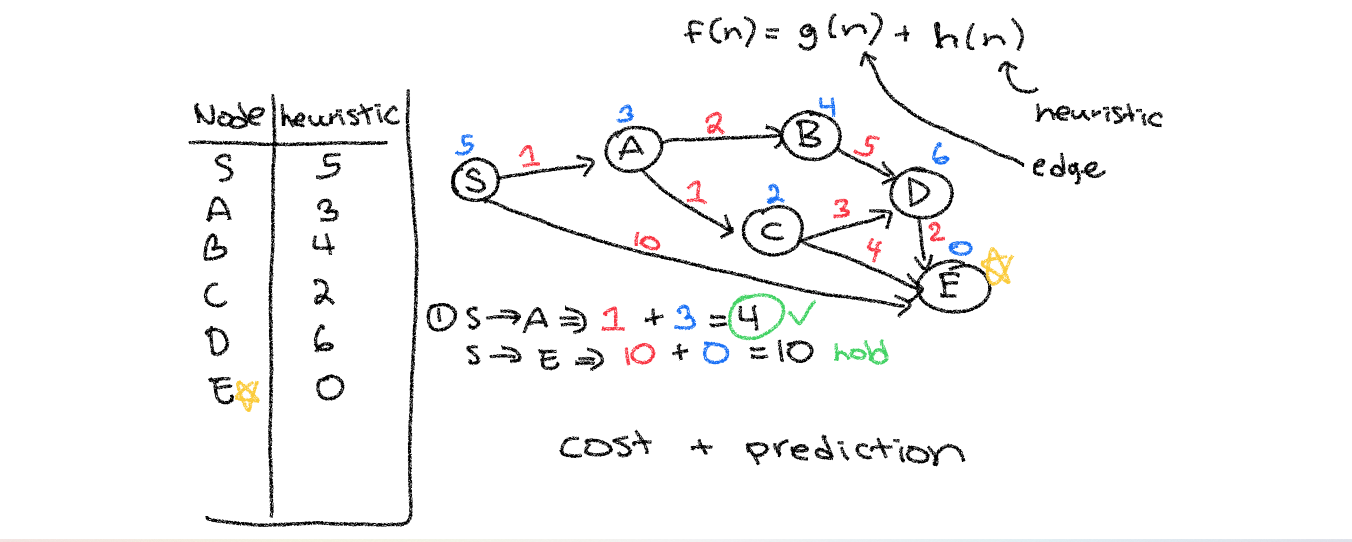 f(n) = g(n) + h(n)
heuristic
edge
Node heuristic
S 5
A 3
B 4
C 2
D 6
E 0
5
S
1
3
A
2
4
B
5
6
D
1
2
C
3
4
2
0
E
10
① S → A ⇒ 1 + 3 = 4 ✓
S → E ⇒ 10 + 0 = 10 hold
cost + prediction